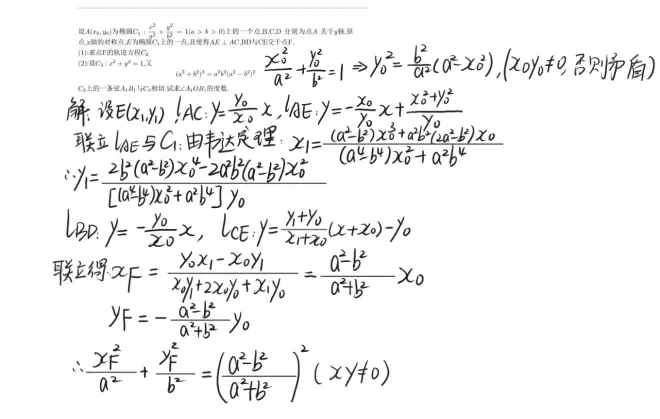 设A(x₀,y₀)为椭圆C₁: x²/a² + y²/b² = 1(a > b > 0)上的一个点,B,C,D 分别为点A 关于y轴,原
点,x轴的对称点,E为椭圆C₁上的一点,且使得AE ⊥ AC,BD与CE交于点F.
(1):求点F的轨迹方程C₂
(2):设C₃ : x² + y² = 1,又
(a² + b²)³ = a²b²(a² − b²)²
C₂上的一条弦A₁B₁与C₃相切,试求∠A₁OB₁的度数.
x₀²/a² + y₀²/b² = 1 ⇒ y₀² = b²/a²(a²-x₀²), (x₀y₀≠0, 否则矛盾)
解: 设E(x₁,y₁) l_AC: y = y₀/x₀ x, l_AE: y = -x₀/y₀ x + (x₀²+y₀²)/y₀
联立l_AE与C₁: 由韦达定理: x₁ = ((a²-b²)x₀³+a²b²(2a²-b²)x₀)/((a⁴-b⁴)x₀²+a²b⁴)
∴y₁ = (2b²(a²-b²)x₀⁴-2a²b²(a²-b²)x₀²)/([(a⁴-b⁴)x₀²+a²b⁴]y₀)
l_BD: y = -y₀/x₀ x, l_CE: y = (y₁+y₀)/(x₁+x₀)(x+x₀)-y₀
联立得: x_F = (y₀x₁-x₀y₁)/(x₀y₁+2x₀y₀+x₁y₀) = (a²-b²)/(a²+b²) x₀
y_F = -(a²-b²)/(a²+b²) y₀
∴ x_F²/a² + y_F²/b² = ((a²-b²)/(a²+b²))² (xy≠0)